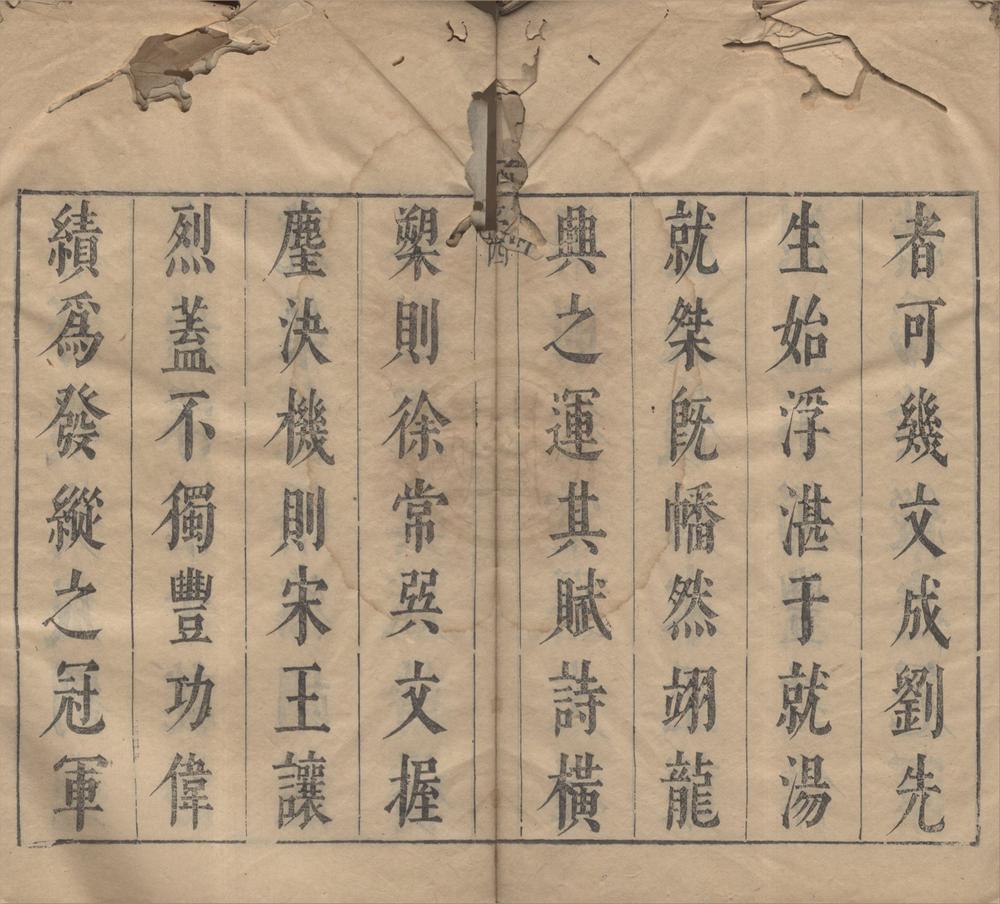 者可幾文成劉先
生始浮湛于就湯
就桀旣幡然翊龍
典之運其賦詩橫
槊則徐常巺文握
麈決機則宋王讓
烈蓋不獨豐功偉
績爲發縱之冠軍